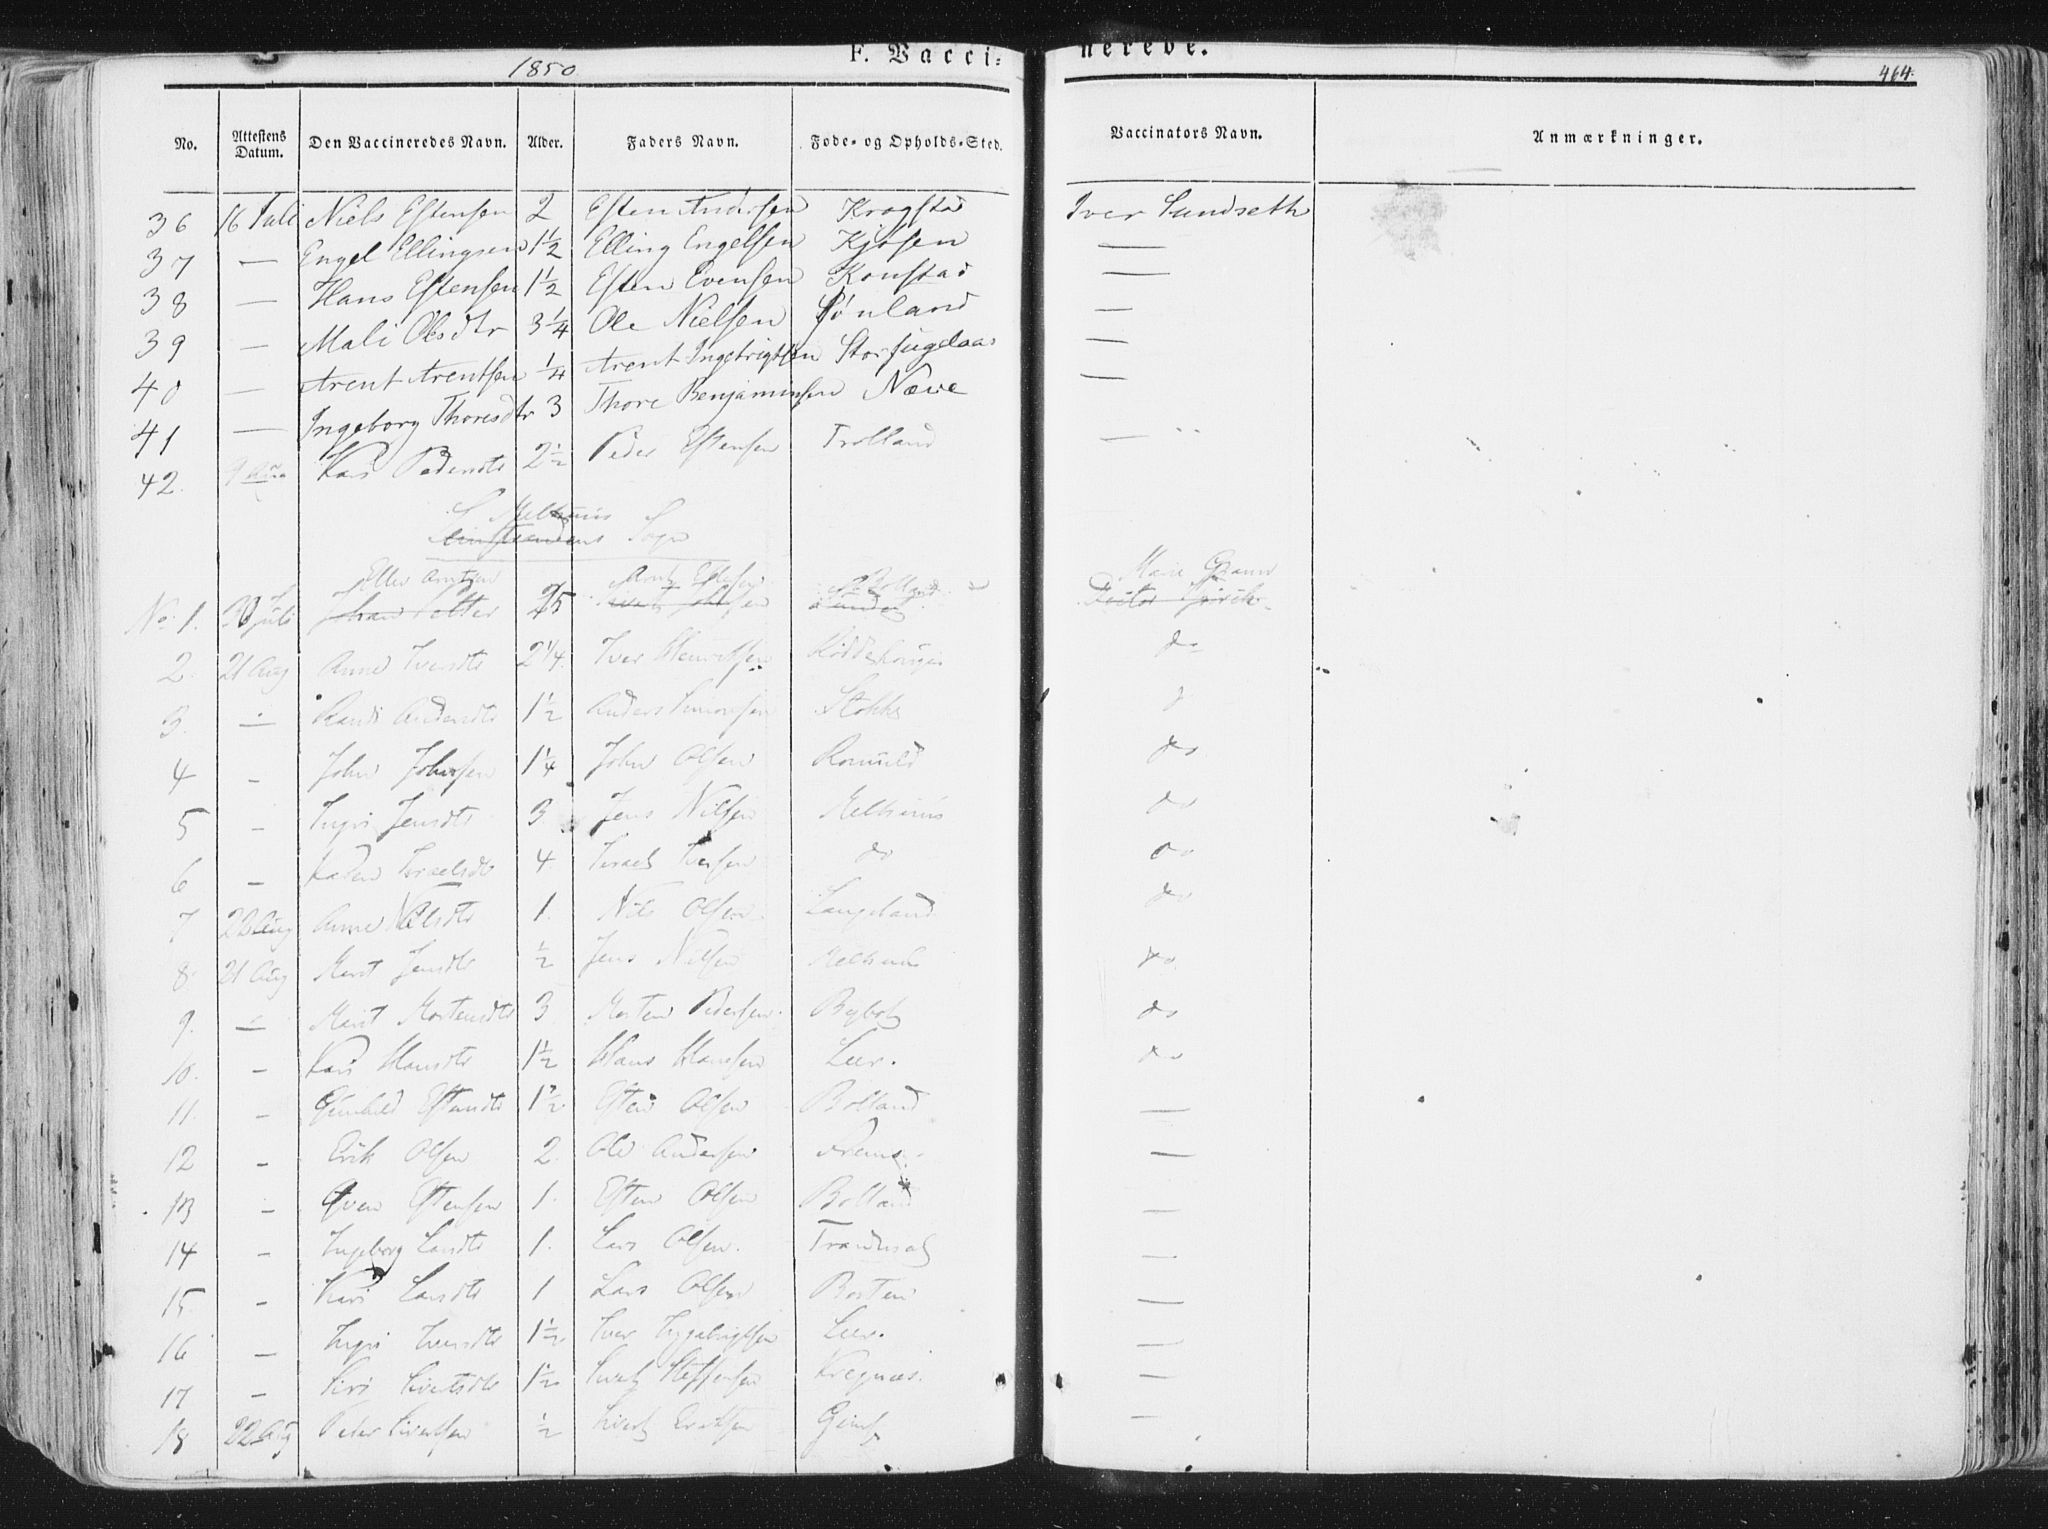 1850 F. Vaccinerede. 464.
No. Attestens Datum. Den Vaccineredes Navn. Alder. Faders Navn. Føde- og Opholds-Sted. Vaccinators Navn. Anmærkninger.
36 16 Juli Niels Estensen 2 Esten Andersen Krogstad Iver Sundseth
37 — Engel Ellingsen 1½ Elling Engelsen Kjøsen —
38 — Hans Estensen 1½ Esten Evensen Konstad —
39 — Mali Olsdtr 3¼ Ole Nielsen Sønland —
40 — Arent Arentsen ¼ Arent Ingebrigtsen Storfugelaas —
41 — Ingeborg Thoresdtr 3 Thore Benjaminsen Næve —
42. 9 Aug Kari Pedersdtr 2½ Peder Estensen Trolland — "
Melhuus
Sogn
Ellev Arntsen Arnt Marie Gram
No. 1. 30 Juli
2. 21 Aug Anne Iversdtr 2¼. Iver Henriksen do
3. — Randi Andersdtr 1½ Anders Simonsen Stokke
4 — John Johnsen 1¼ John Olsen Romuld do
5 — Ingri Jensdtr 3 Jens Nilsen Melhuus do
6 — Karen Israelsdtr 4 Israel Iversen do do
7 22 Aug Anne Nilsdtr 1. Nils Olsen Langeland do
8. 21 Aug Marit Jensdtr ½ Jens Nilsen Melhuus do
9. — Marit Mortensdtr 3 Morten Pedersen Bybol do
10. — Kari Hansdtr 1½ Hans Hansen Leer. do
11. — Gunhild Estensdtr 1½ Esten Olsen Bolland —
12 — Erik Olsen 2. Ole Andersen —
13 — Even Estensen 1. Esten Olsen Bolland —
14 — Ingeborg Larsdtr 1. Lars Olsen. —
15. — Kari Larsdtr 1 Lars Olsen Borten —
16 — Ingri Iversdtr 1½ Iver Ingebrigtsen Leer. —
17 — Siri Sivertsdtr 1½ Sivert Steffensen Kregnæs. —
18 22 Aug Peter Sivertsen ½ Sivert Eriksen Gimse —